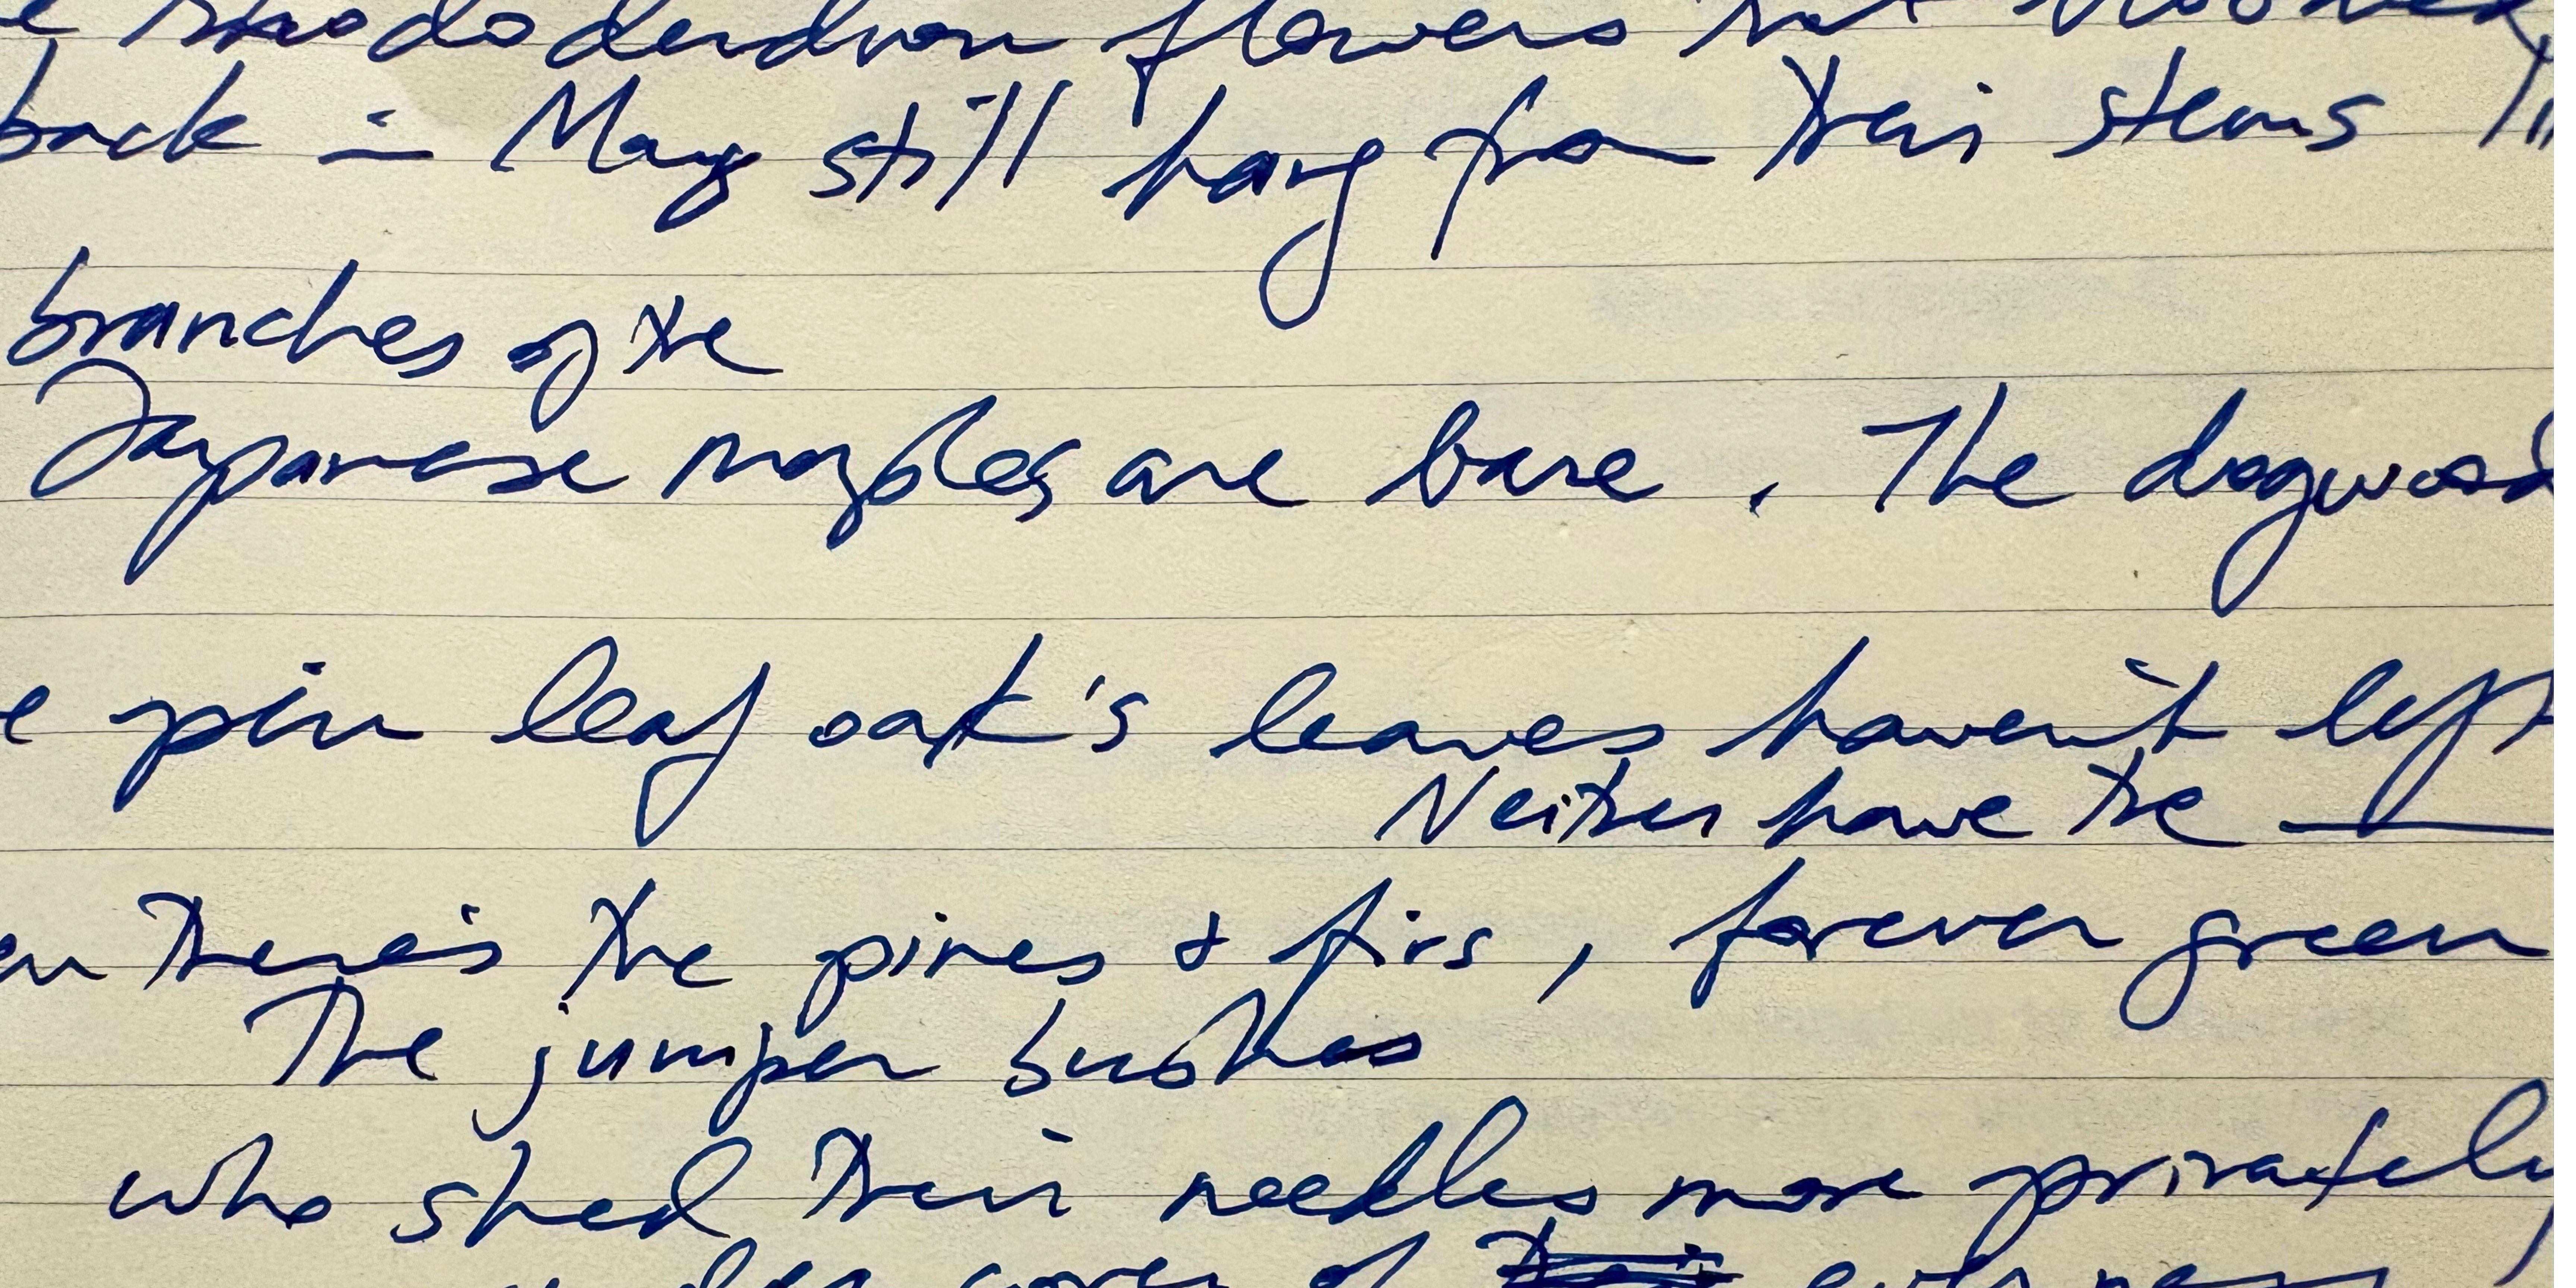 rhododendron flowers that bloomed
back in May still hang from their stems
branches of the
Japanese maples are bare. The dogwood
pin leaf oak's leaves haven't left
Neither have the —
there's the pines & firs, forever green
The juniper bushes
who shed their needles more privately
cover of